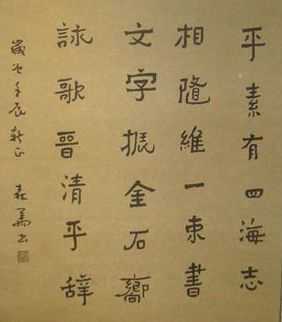 平素有四海志
相隨維一束書
文字振金石嚮
詠歌晉清平辭
歲次壬辰新正